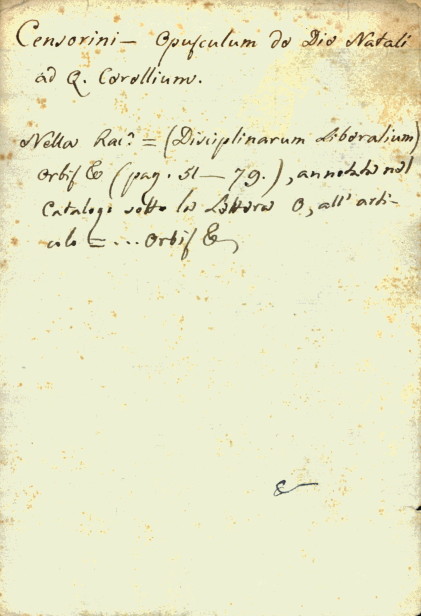 Censorini — Opusculum de Die Natali
ad Q. Cerellium.
Nella Rac.ª = (Disciplinarum Liberalium)
Orbis &c (pag. 51 — 79.), annotata nel
Catalogo sotto la Lettera O, all' arti-
colo = ... Orbis &c